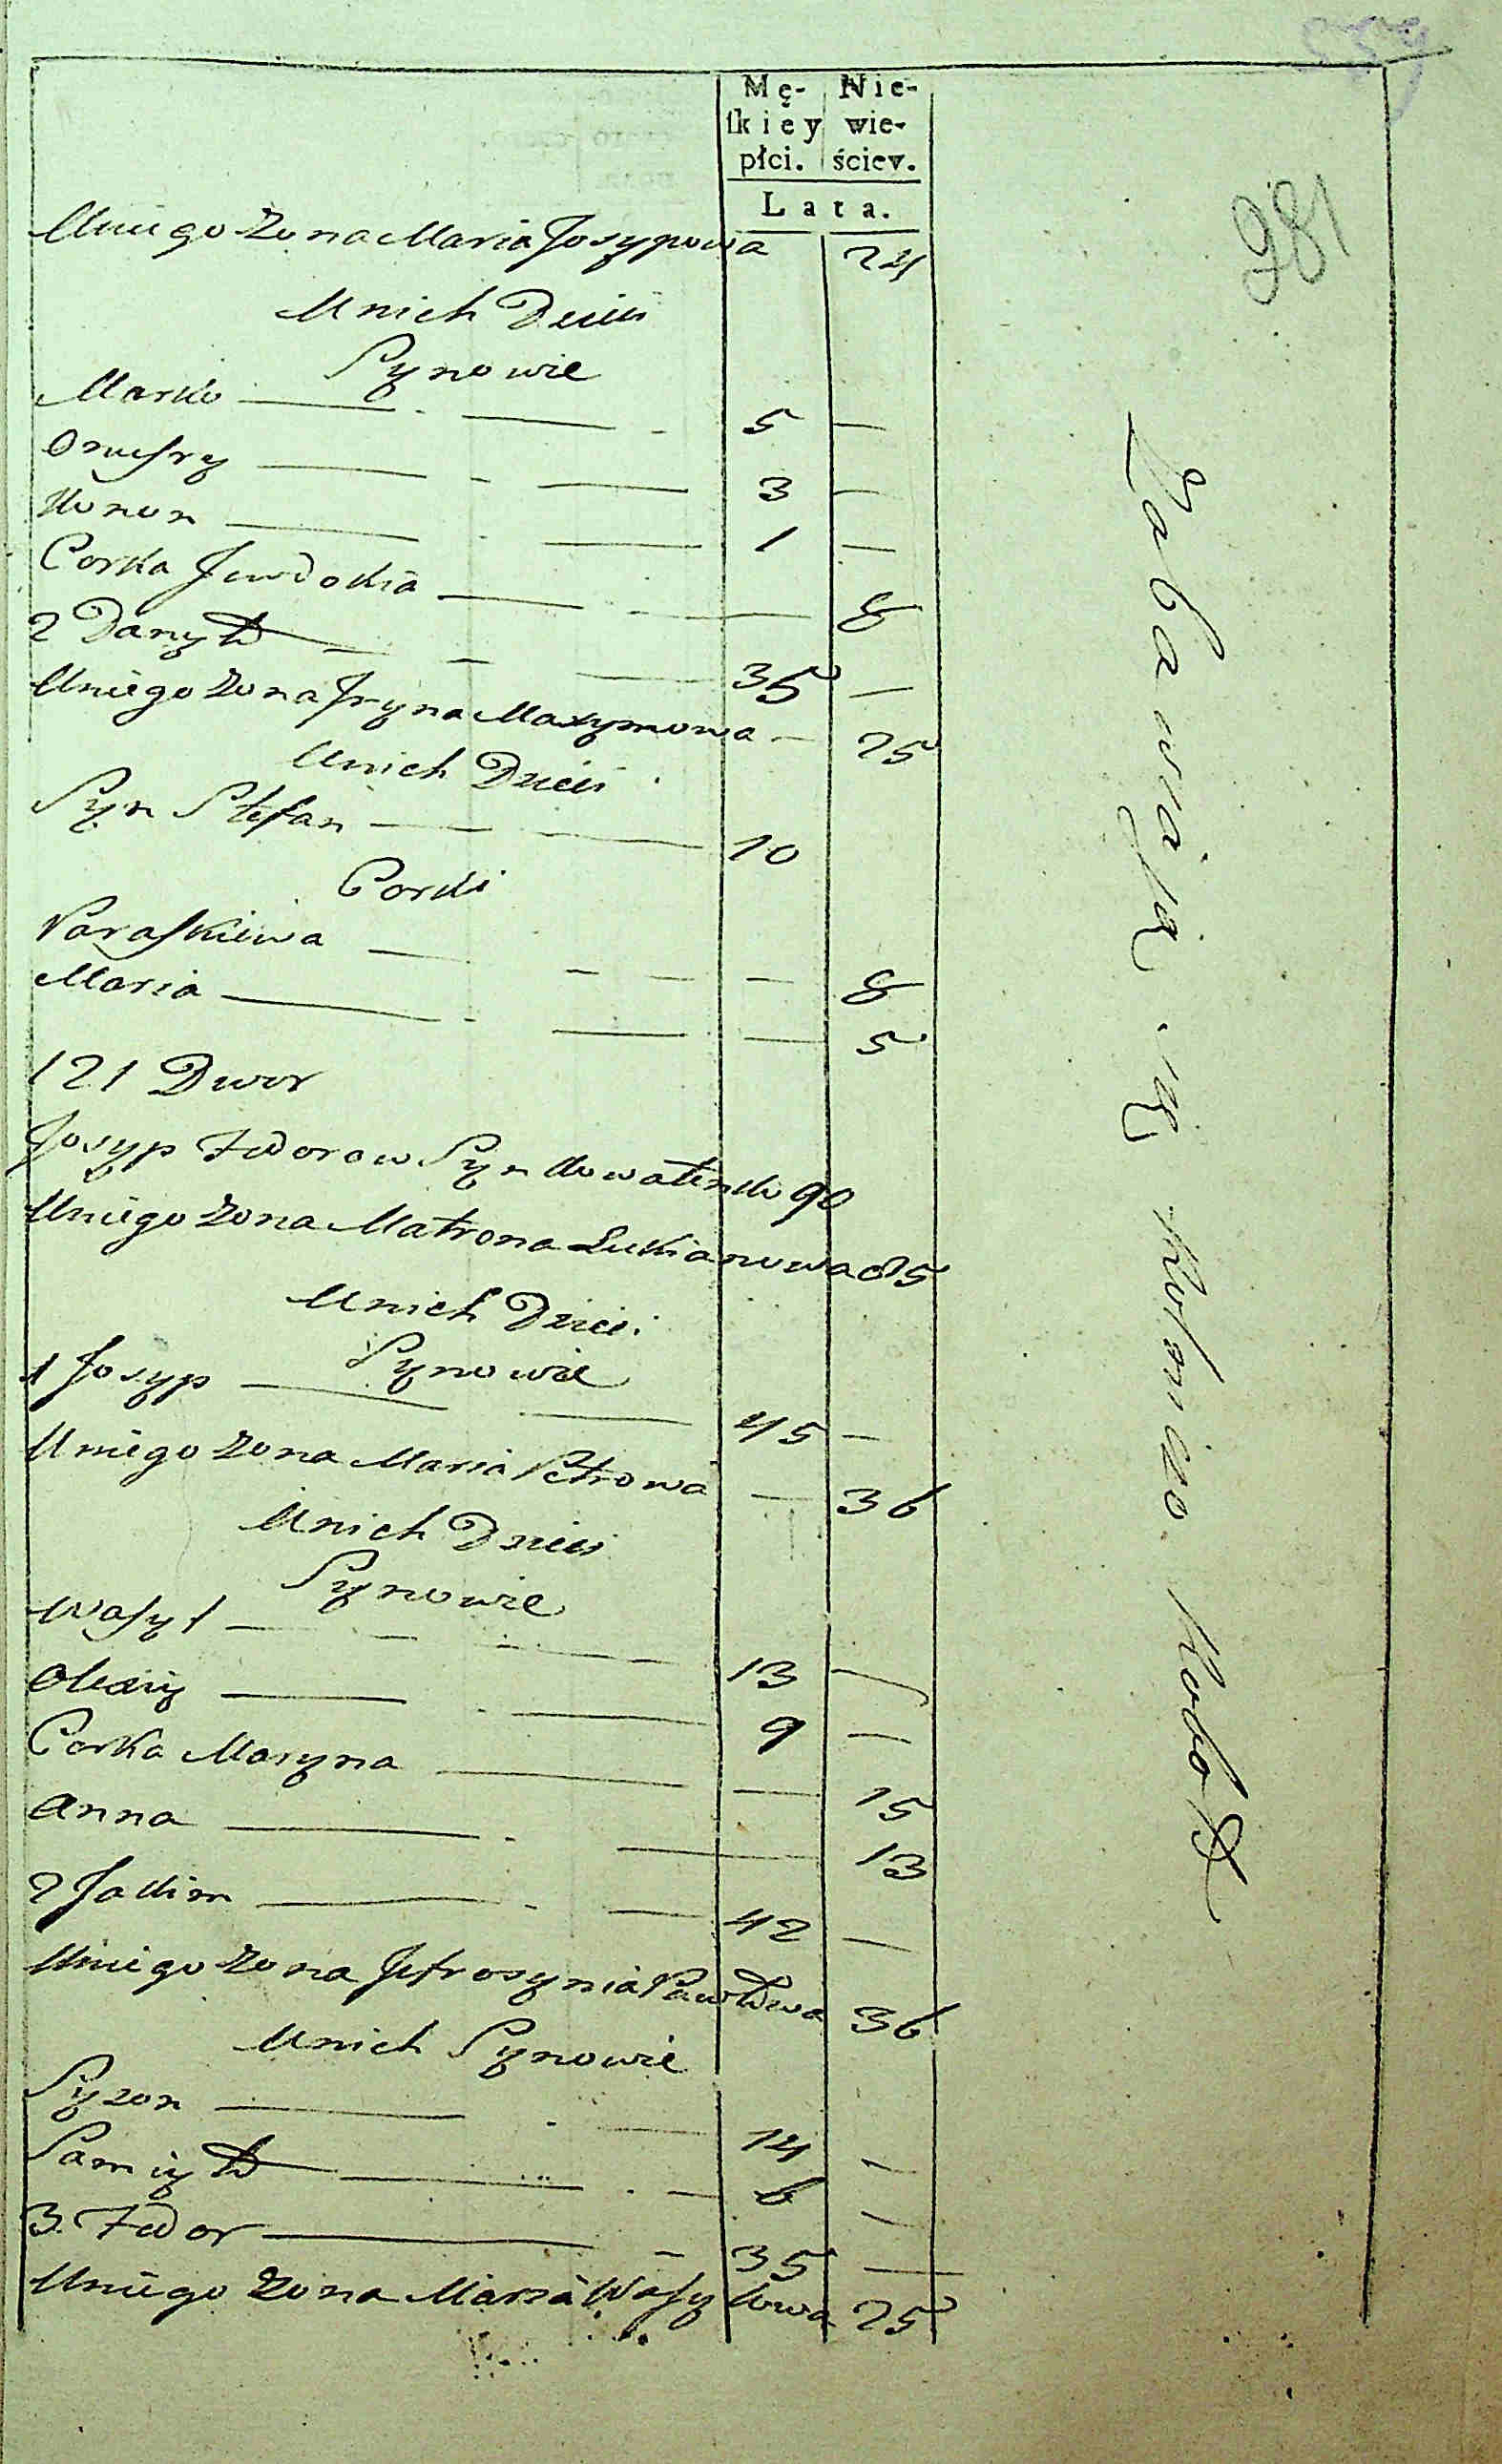 281
Mę- Nie-
skiey wie-
płci. ściey.
Lata.
Uniego Zona Maria Josypowa 24
Unich Dzieci
Synowie
Marko 5 —
Onufry 3 —
Konon 1 —
Corka Jewdokia 8
2 Danyło 35 —
Uniego Zona Jryna Maxymowa — 25
Unich Dzieci
Syn Stefan 10
Corki
Paraskiewa — 8
Maria — 5
121 Dwor
Josyp Fedorow Syn Kowalenko 90
Uniego Zona Matrona Lukianowa 85
Unich Dzieci
Synowie
1 Josyp 45 —
Uniego Zona Maria Petrowa — 36
Unich Dzieci
Synowie
Wasyl 13 —
Olexiy 9 —
Corka Maryna — 15
Anna 13
2 Jakim 42 —
Uniego Zona Jefrosynia Pawłowa 36
Unich Synowie
Syzon 14 —
Samiyło 6 —
3. Fedor 35 —
Uniego Zona Maria Wasylowa 25
Zabawiaią się rolniczo robotą